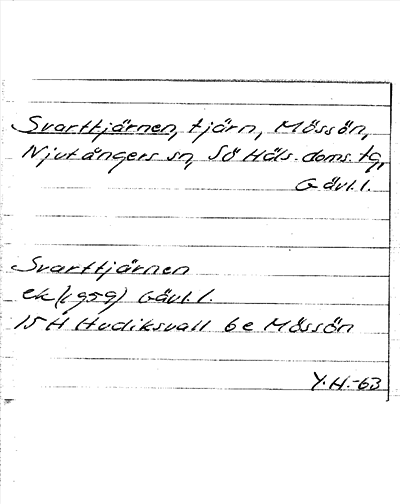 Svarttjärnen, tjärn, Mössön,
Njutångers sn, Sö Häls. doms. tg,
Gävl. l.
Svarttjärnen
ek (1959) Gävl. l.
15 H Hudiksvall 6 e Mössön
Y.H.-63